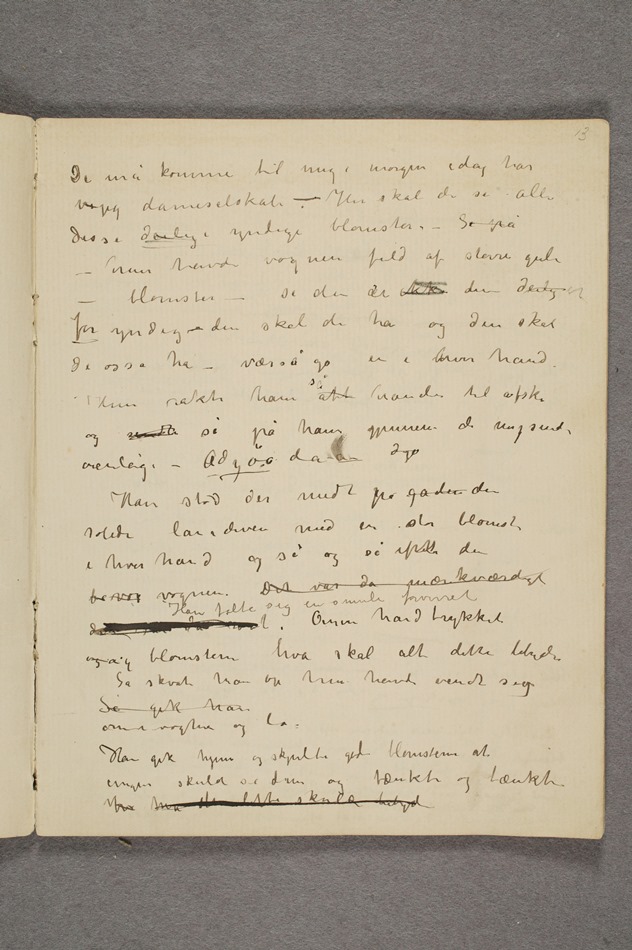 13
De må komme til mig i morgen idag har
jeg dameselskab – Her skal de se alle
disse deilige yndige blomster. – Se på
– Hun havde vognen fuld af store gule
– blomster – se den är den deilig
for yndig – den skal de ha og den skal
de osså ha – værså go en i hver hand.
Hun rakte ham så hånden til afske
og så på ham gjennem de
venlig. – Adjöö da
Han stod der midt på gaden den
solede landeven med en stor blomst
i hver hand og så og så efter den
vognen. Det var da mærkværdigt
Han følte sig en smule forvirret
Hvorom handtrykket
og blomstene hva skal alt dette betyde
Så skvat han op hun havde vendt sig
Så gik han
om i vognen og lo.
Han gik hjem og skjulte godt blomstene at
ingen skulde se dem og tænkte og tænkte
hva dette skulde betyde